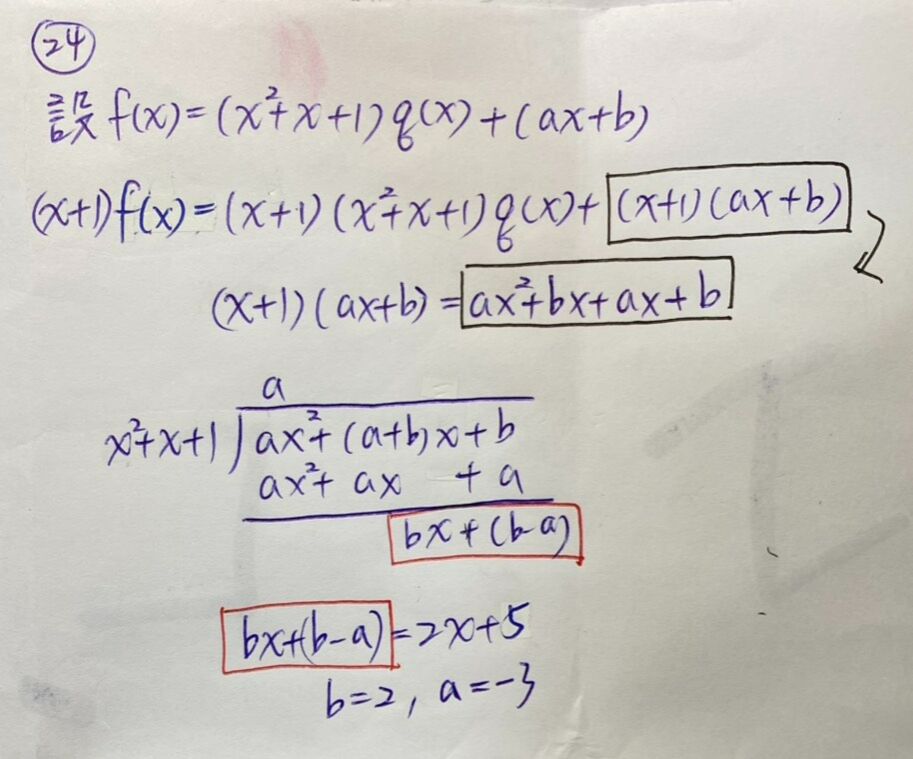 24
設 f(x)=(x²+x+1)q(x)+(ax+b)
(x+1)f(x)=(x+1)(x²+x+1)q(x)+(x+1)(ax+b)
(x+1)(ax+b)=ax²+bx+ax+b
a
x²+x+1)ax²+(a+b)x+b
ax²+ax+a
bx+(b-a)
bx+(b-a)=2x+5
b=2, a=-3